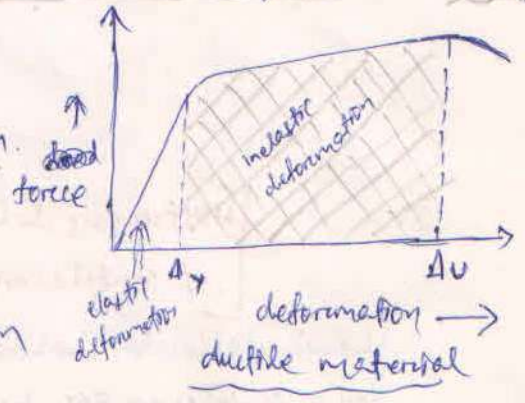 force
inelastic
deformation
Δy
Δu
elastic
deformation
deformation
ductile material